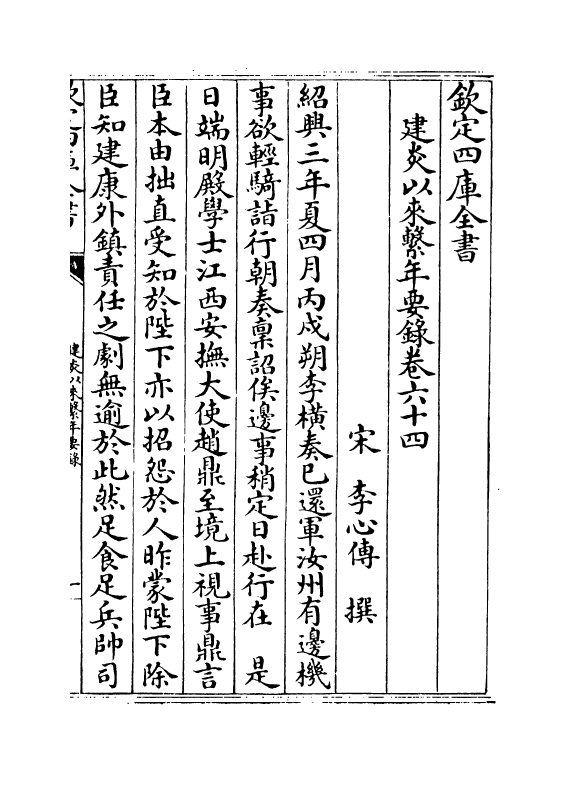 欽定四庫全書
建炎以來繫年要錄卷六十四
宋 李心傳 撰
紹興三年夏四月丙戌朔李橫奏已還軍汝州有邊機
事欲輕騎詣行朝奏稟詔俟邊事稍定日赴行在 是
日端明殿學士江西安撫大使趙鼎至境上視事鼎言
臣本由拙直受知於陛下亦以招怨於人昨蒙陛下除
臣知建康外鎮責任之劇無逾於此然足食足兵帥司
建炎以來繫年要錄
一